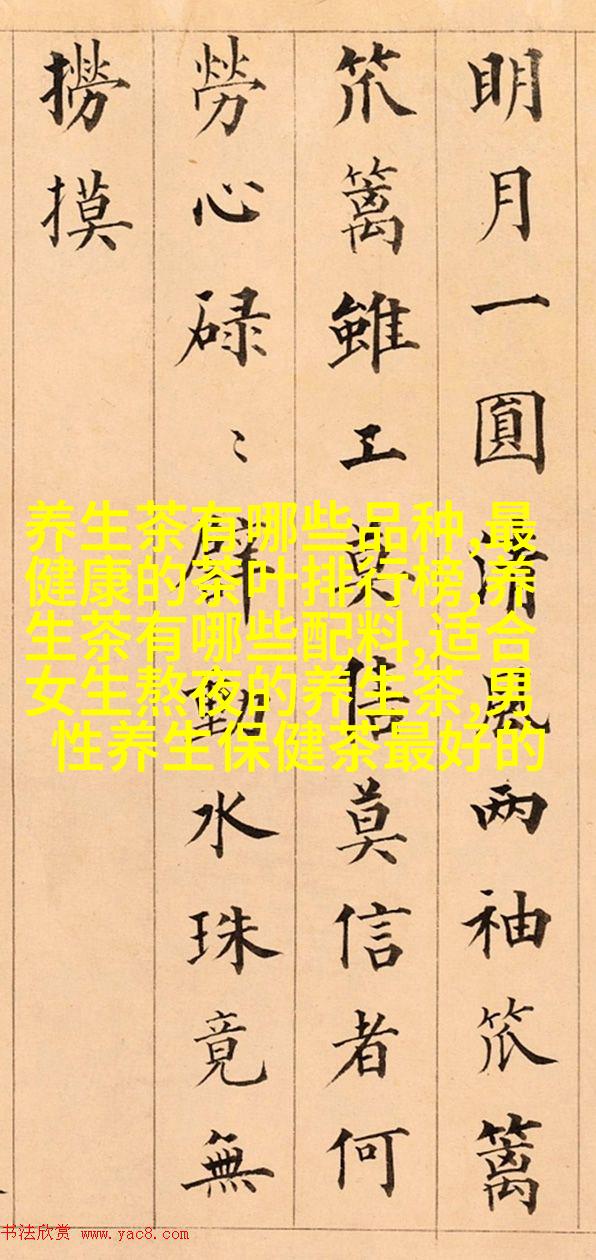 明月一圓清風两袖笊篱
笊篱雖工信莫信者何
勞心碌〻水珠竟無
撈摸
养生茶有哪些品种,最
健康的茶叶排行榜,养
生茶有哪些配料,适合
女生熬夜的养生茶,男
性养生保健茶最好的
书法欣赏 www.yac8.com